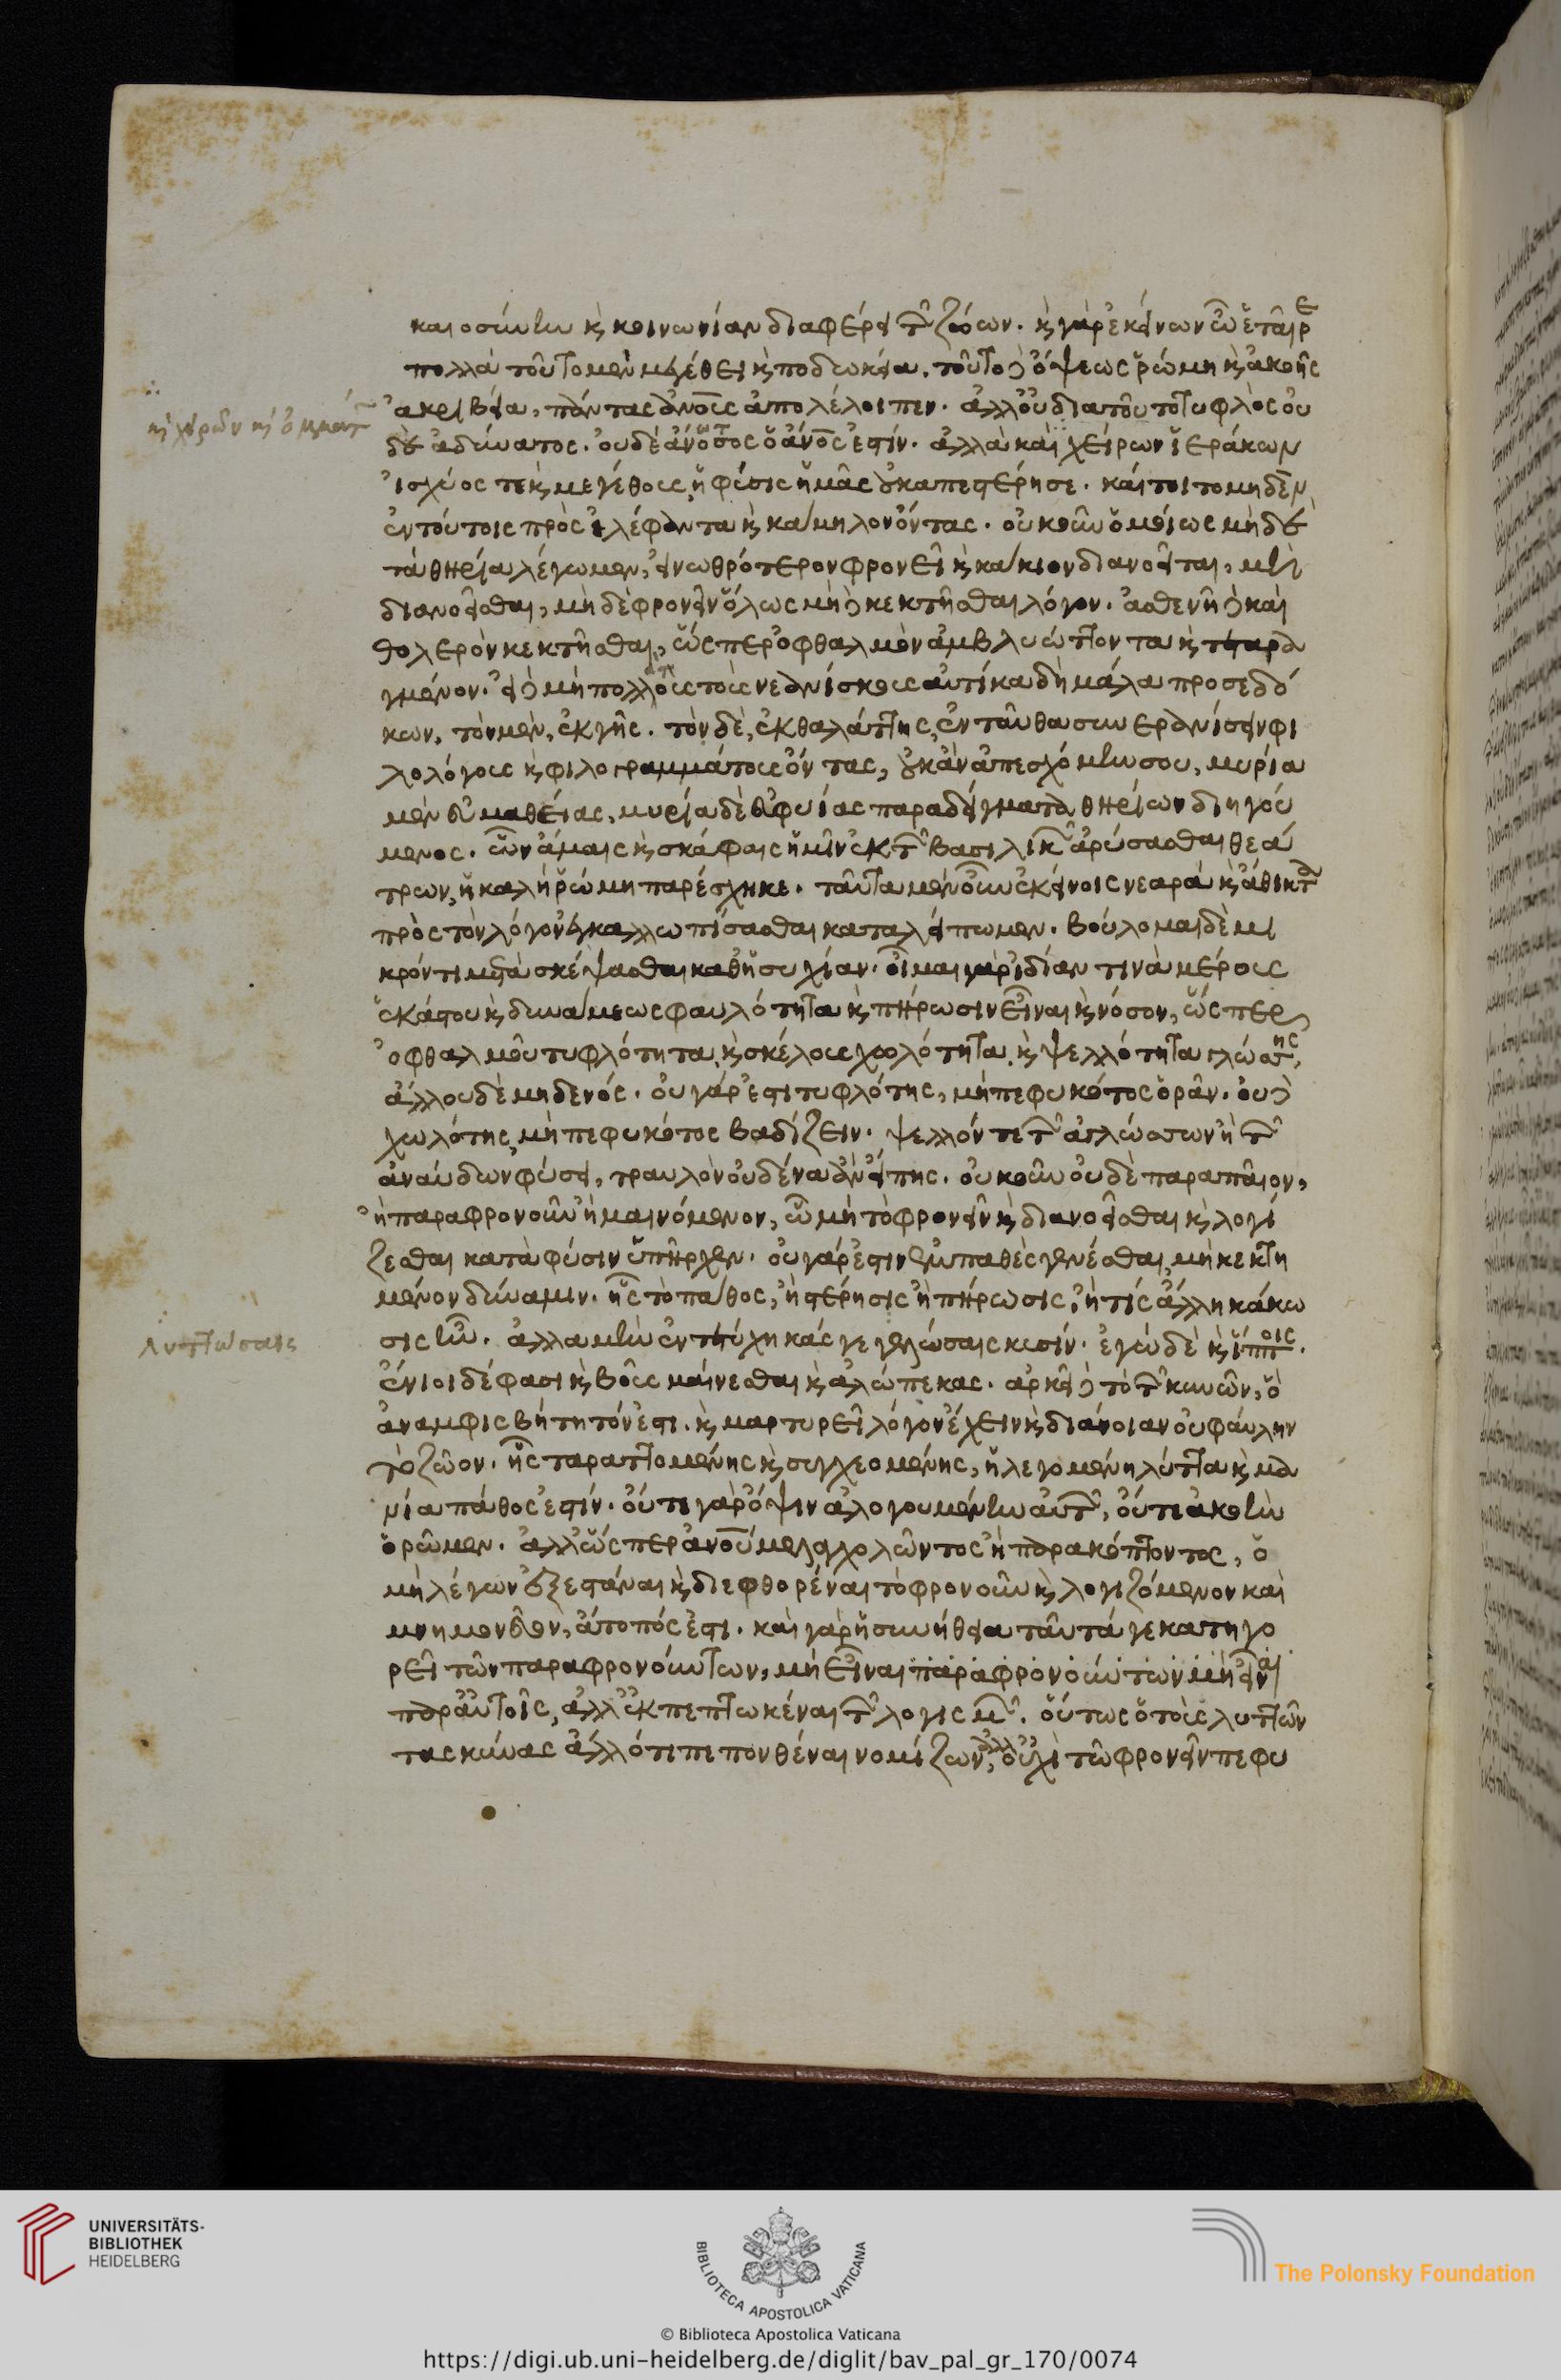 καιοσύνην κ̀ κοινωνίαν διαφέρει τ̑ ζώων. κ̀ γὰρ ἐκείνων ὦ ἑταῖρε
πολλὰ τοῦτο μὲν μεγέθει κ̀ ποδωκεία, τοῦτο δ ὄψεως ῥώμη κ̀ ἀκοῆς
ἀκριβεία, πάντας ἀνους ἀπολέλοιπεν. ἀλλ' οὐ διατοῦτο τυφλὸς οὐ
δὲ ἀδύνατος. οὐδὲ ἀν ὁ ἄνος ἐστίν. ἀλλὰ καὶ χείρων ἱεράκων
ἰσχύος τε κ̀ μεγέθους ἡ φύσις ἡμᾶς οὐκ ἀπεστέρησε. καίτοι το μηδὲν
ἐν τούτοις πρὸς ἐλέφαντα κ̀ κάμηλον ὄντας. οὐκοῦν ὁμοίως μὴδὲ
τὰ θηρία λέγωμεν, εἰ νωθρότερον φρονεῖ κ̀ κάκιον διανοεῖται, μὴ
διανοεῖσθαι, μὴ δὲ φρονεῖν ὅλως μὴ δ κεκτῆσθαι λόγον. ἀσθενῆ δ καὶ
θολερὸν κεκτῆσθαι, ὥσπερ ὀφθαλμὸν ἀμβλυώττοντα κ̀ τεταρα
γμένον. εἰ δ μὴ πολλοὺς τοὺς νεανίσκους αὐτίκα δὴ μάλα προσεδό
κων, τὸν μὲν, ἐκ γῆς. τὸν δὲ, ἐκ θαλάττης, ἐνταῦθα συνερανίσειν φι
λολόγους κ̀ φιλογραμμάτους ὄντας, οὐκ ἂν ἀπεσχόμην σου, μυρία
μὲν εὐμαθείας, μυρία δὲ εὐφυίας παραδείγματα θηρίων διηγού
μενος. ὧν ἄμαις κ̀ σκάφαις ἡμῖν ἐκ τ̑ βασιλικ̑ ἀρύσασθαι θεά
τρων, ἡ καλὴ ῥώμη παρέσχηκε. ταῦτα μὲν οὖν ἐκείνοις νεαρὰ κ̀ ἄθικτα
πρὸς τὸν λόγον ἐγκαλλωπίσασθαι καταλείπωμεν. βούλομαι δὲ μι
κρόν τι μετὰ σκέψασθαι καθ' ἡσυχίαν. οἶμαι γὰρ ἰδίαν τινὰ μέρους
ἑκάστου κ̀ δυνάμεως φαυλότητα κ̀ πήρωσιν εἶναι κ̀ νόσον, ὥσπερ
ὀφθαλμοῦ τυφλότητα, κ̀ σκέλους χωλότητα, κ̀ ψελλότητα γλώσσης,
ἄλλου δὲ μηδενός. οὐ γάρ ἐστι τυφλότης, μὴ πεφυκότος ὁρᾶν. οὐ δ
χωλότης, μὴ πεφυκότος βαδίζειν. ψελλόν τε τ̑ ἀγλώσσων ἢ τ̑
ἀναύδων φύσει, τραυλὸν οὐδένα ἂν εἴπης. οὐκοῦν οὐδὲ παραπαῖον,
ἢ παραφρονοῦν ἢ μαινόμενον, ὧ μὴ τὸ φρονεῖν κ̀ διανοεῖσθαι κ̀ λογί
ζεσθαι κατὰ φύσιν ὑπῆρχεν. οὐ γάρ ἐστιν ἐμπαθὲς γενέσθαι, μὴ κεκτη
μένον δύναμιν. ἧς τὸ πάθος, ἢ στέρησις ἢ πήρωσις, ἢ τίς ἄλλη κάκω
σις ἦν. ἀλλα μὴν ἐντετύχηκάς γε λυσσώσαις κυσίν. ἐγὼ δὲ κ̀ ἵπποις.
ἔνιοι δέ φασι κ̀ βοῦς μαίνεσθαι κ̀ ἀλώπεκας. ἀρκεῖ δ τὸ τ̑ κυνῶν, ὃ
ἀναμφισβήτητόν ἐστι. κ̀ μαρτυρεῖ λόγον ἔχειν κ̀ διάνοιαν οὐ φαύλην
τὸ ζῶον. ἧς ταραττομένης κ̀ συγχεομένης, ἡ λεγομένη λύττα κ̀ μα
νία πάθος ἐστίν. οὔτε γὰρ ὄψιν ἀλογουμένην αὐτ̑, οὔτε ἀκοὴν
ὁρῶμεν. ἀλλ' ὥσπερ ἀνου μελαγχολῶντος ἢ παρακόπτοντος, ὁ
μὴ λέγων ἐξεστάναι κ̀ διεφθορέναι τὸ φρονοῦν κ̀ λογιζόμενον καὶ
μνημονεῦον, ἄτοπός ἐστι. καὶ γὰρ ἡ συνήθεια ταῦτά γε κατηγο
ρεῖ τῶν παραφρονούντων, μὴ εἶναι παραφρονούντων μὴ εἶναι
παρ' αὑτοῖς, ἀλλ' ἐκπεπτωκέναι τ̑ λογισμ̑. οὕτως ὁ τοὺς λυττῶν
τας κύνας ἄλλό τι πεπονθέναι νομίζων, ἀλλ' οὐχὶ τῶ φρονεῖν πεφυ
κ̀ χειρῶν κ̀ ὀμμάτ
λυττώσαις
UNIVERSITÄTS-
BIBLIOTHEK
HEIDELBERG
BIBLIOTECA APOSTOLICA VATICANA
The Polonsky Foundation
© Biblioteca Apostolica Vaticana
https://digi.ub.uni-heidelberg.de/diglit/bav_pal_gr_170/0074